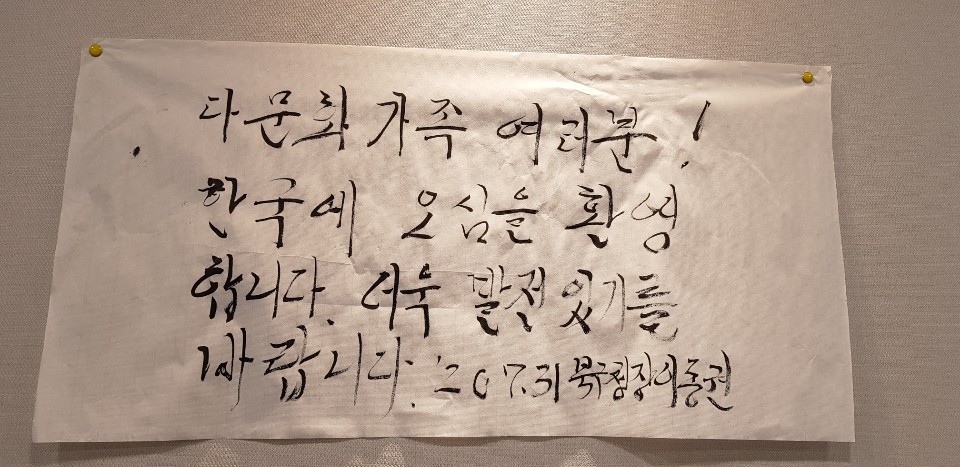 다문화 가족 여러분!
한국에 오심을 환영
합니다. 더욱 발전 있기를
바랍니다. '20 7.31 북구청장 이동권